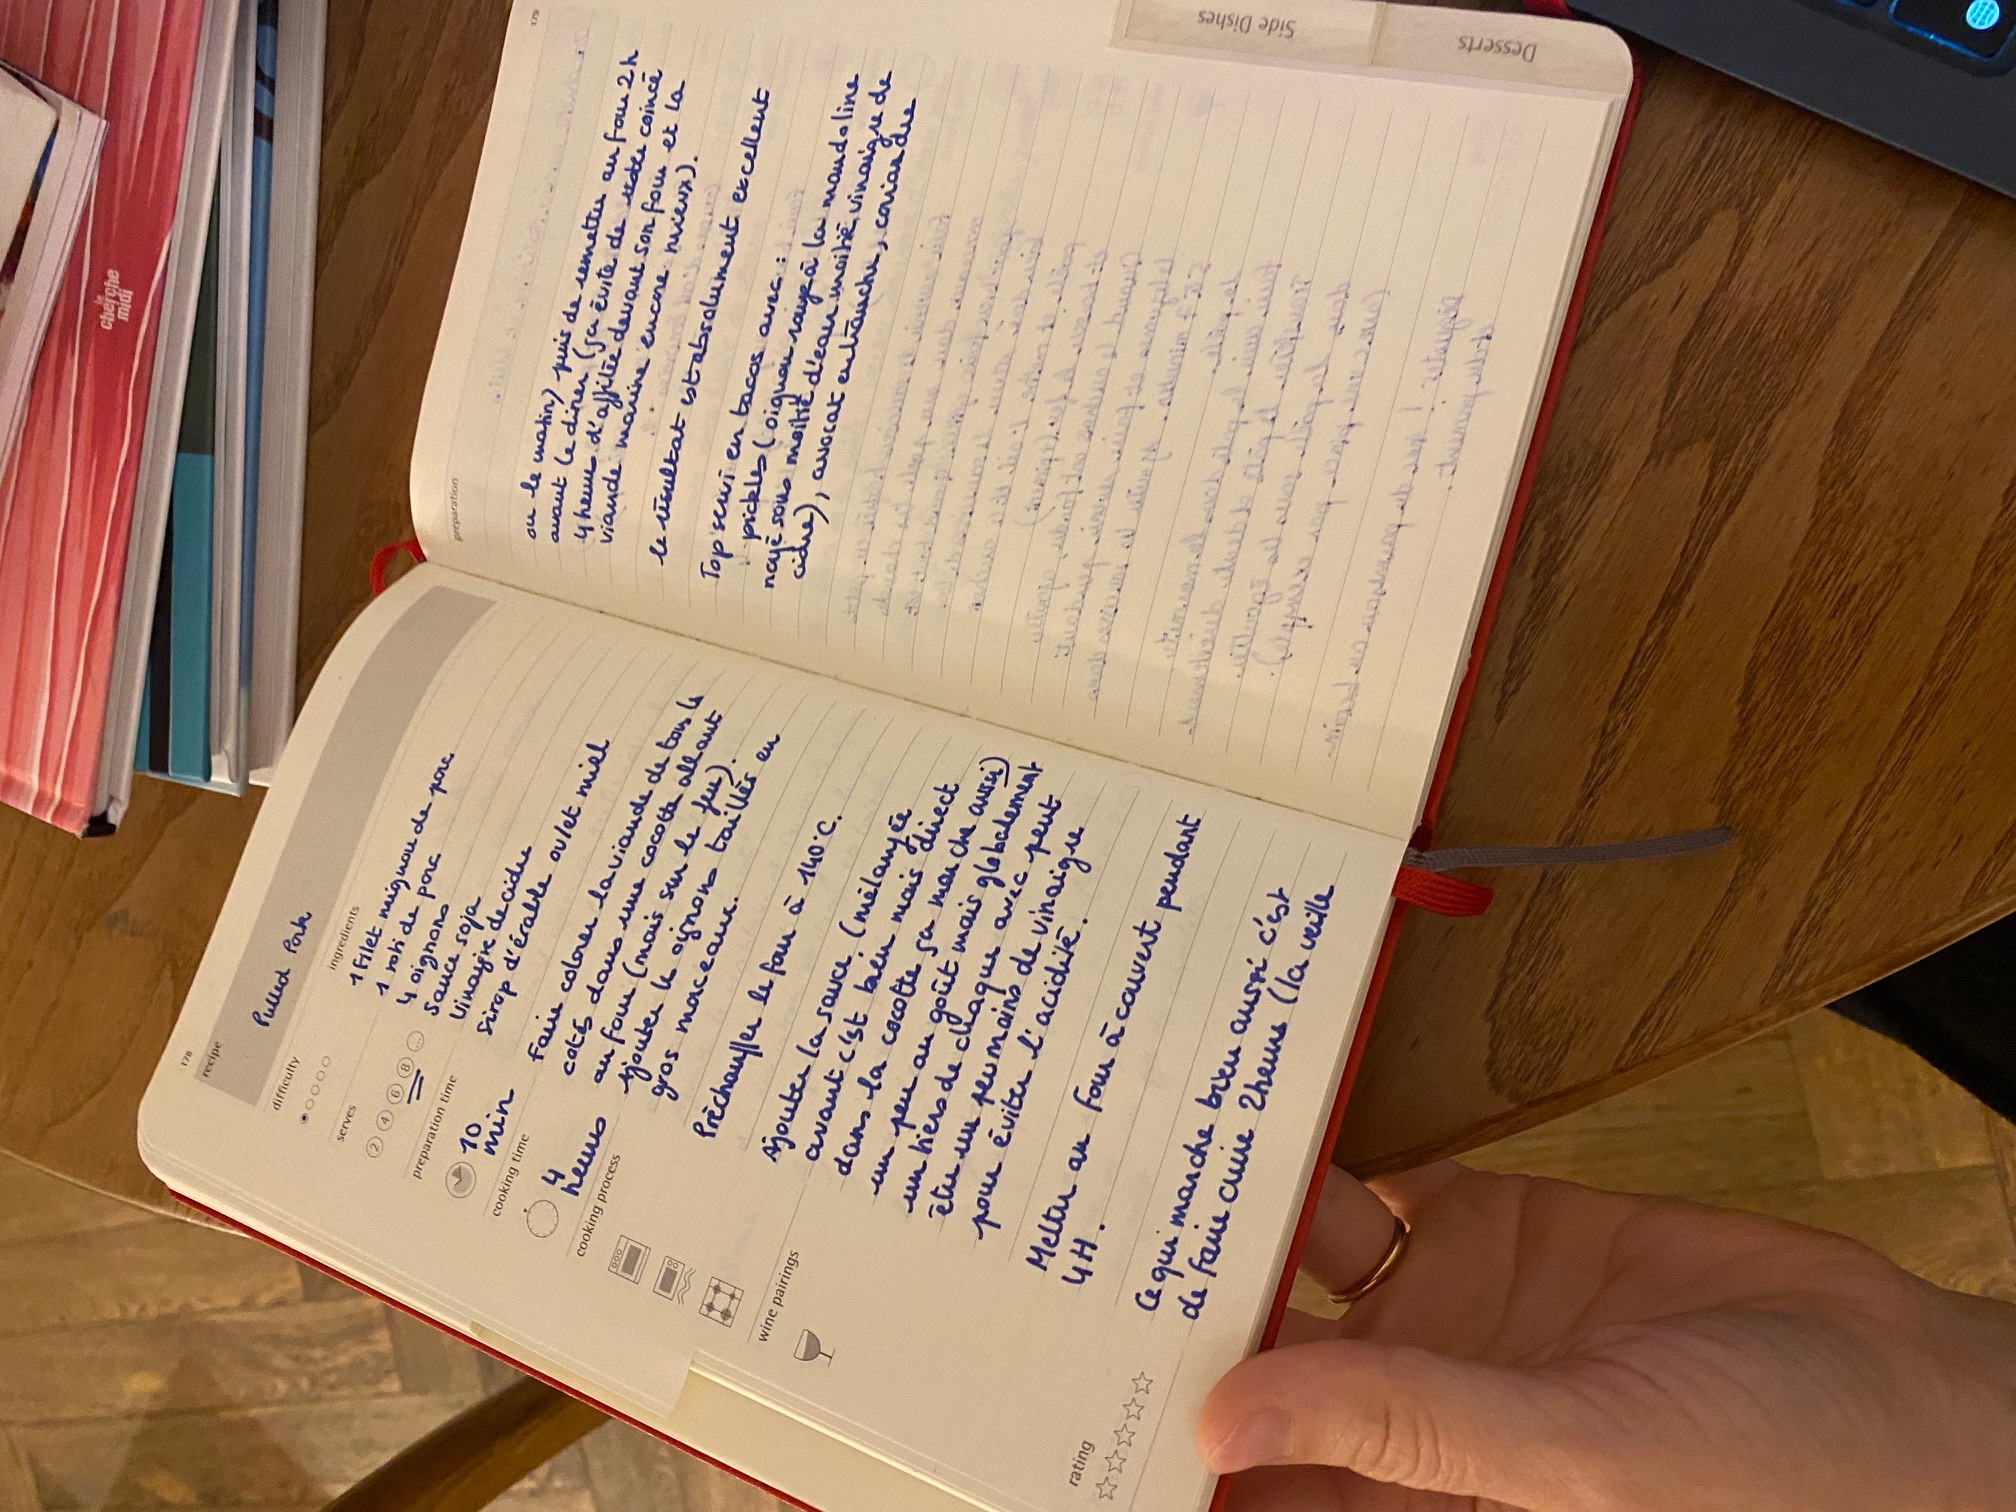 178
recipe
Pulled Pork
difficulty
serves
2 4 6 8 ...
preparation time
10
min
cooking time
4
heures
cooking process
wine pairings
rating
ingredients
1 Filet mignon de porc
1 roti de porc
4 oignons
Sauce soja
Vinaigre de cidre
Sirop d'érable ou/et miel
Faire colorer la viande de tous le
cotés dans une cocotte allant
au four (mais sur le feu).
Ajouter le oignons taillés en
gros morceaux.
Préchauffer le four à 140°C.
Ajouter la sauce (mélangée
avant c'est bien mais direct
dans la cocotte sa marche aussi)
un peu au goût mais globalement
un tiers de chaque avec peut
être un peu moins de vinaigre
pour éviter l'acidité.
Mettre au four à couvert pendant
4H.
Ce qui marche bien aussi c'est
de faire cuire 2heures (la veille
179
preparation
ou le matin) puis de remettre au four 2h
avant le diner (ça évite de rester coincé
4 heures d'affilée devant son four et la
viande marine encore mieux).
le résultat est absolument excellent
Top servi en tacos avec :
pickles (oignon rouge à la mandoline
noyé sous moitié d'eau moitié vinaigre de
cidre), avocat en tranche, coriandre
Side Dishes
Desserts
le
cherche
midi